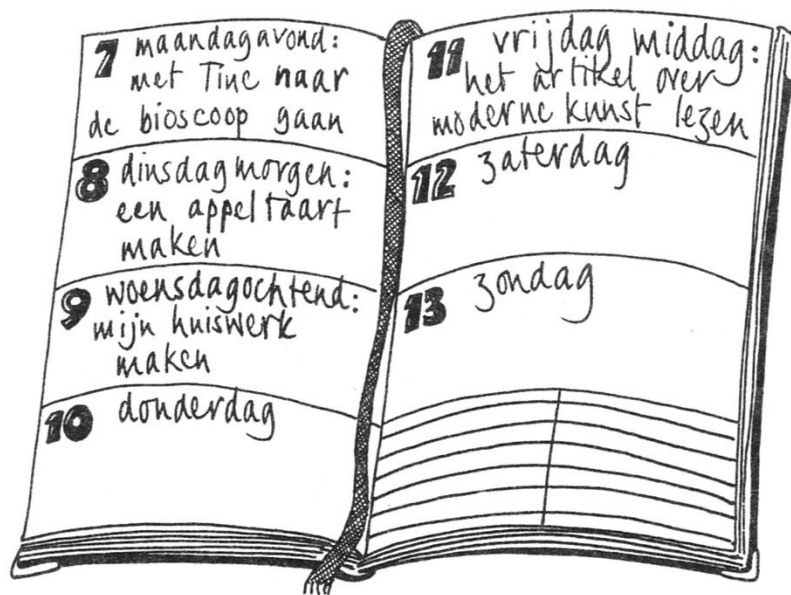 7 maandagavond:
met Tine naar
de bioscoop gaan
8 dinsdagmorgen:
een appeltaart
maken
9 woensdagochtend:
mijn huiswerk
maken
10 donderdag
11 vrijdag middag:
het artikel over
moderne kunst lezen
12 zaterdag
13 zondag